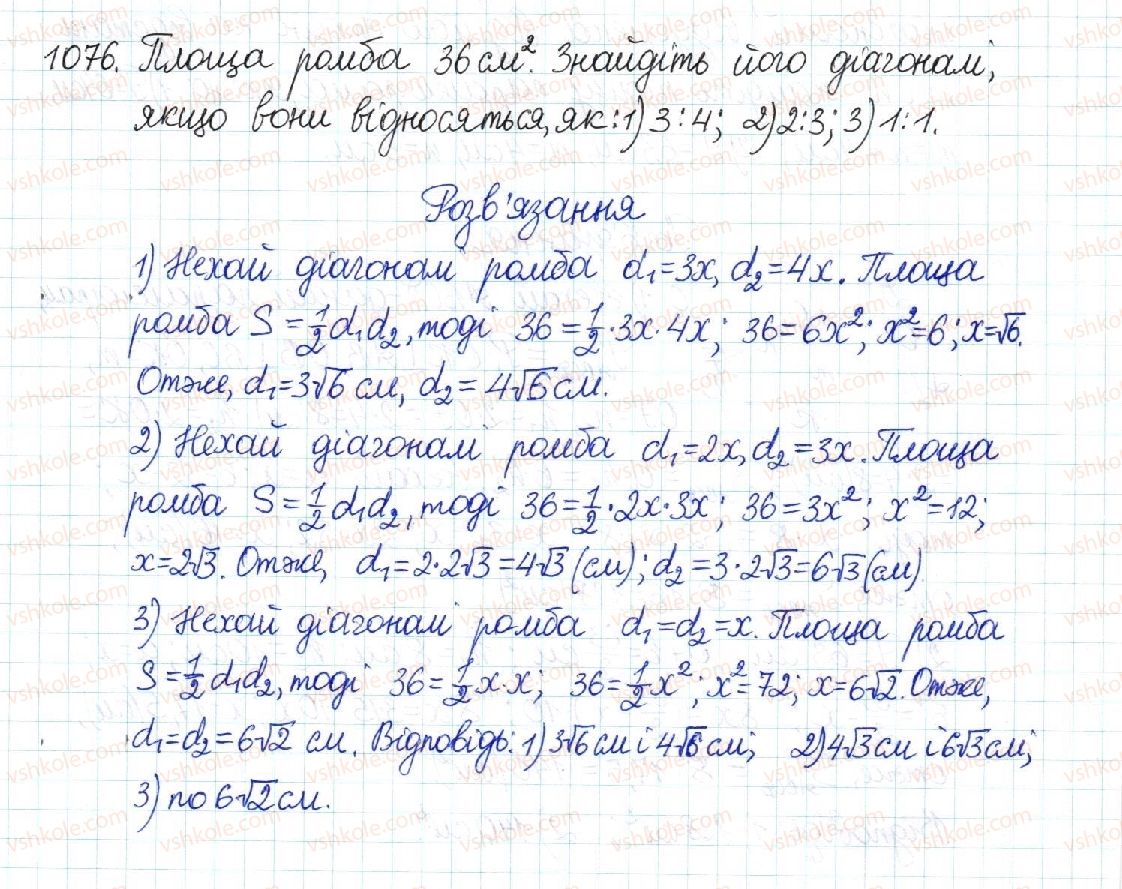 1076. Площа ромба 36 см². Знайдіть його діагоналі,
якщо вони відносяться, як: 1) 3:4; 2) 2:3; 3) 1:1.
Розв'язання
1) Нехай діагоналі ромба d₁=3x, d₂=4x. Площа
ромба S=½d₁d₂, тоді 36=½·3x·4x; 36=6x²; x²=6; x=√6.
Отже, d₁=3√6 см, d₂=4√6 см.
2) Нехай діагоналі ромба d₁=2x, d₂=3x. Площа
ромба S=½d₁d₂, тоді 36=½·2x·3x; 36=3x²; x²=12;
x=2√3. Отже, d₁=2·2√3=4√3 (см); d₂=3·2√3=6√3 (см)
3) Нехай діагоналі ромба d₁=d₂=x. Площа ромба
S=½d₁d₂, тоді 36=½x·x; 36=½x²; x²=72; x=6√2. Отже,
d₁=d₂=6√2 см. Відповідь: 1) 3√6 см і 4√6 см; 2) 4√3 см і 6√3 см;
3) по 6√2 см.
vshkole.com